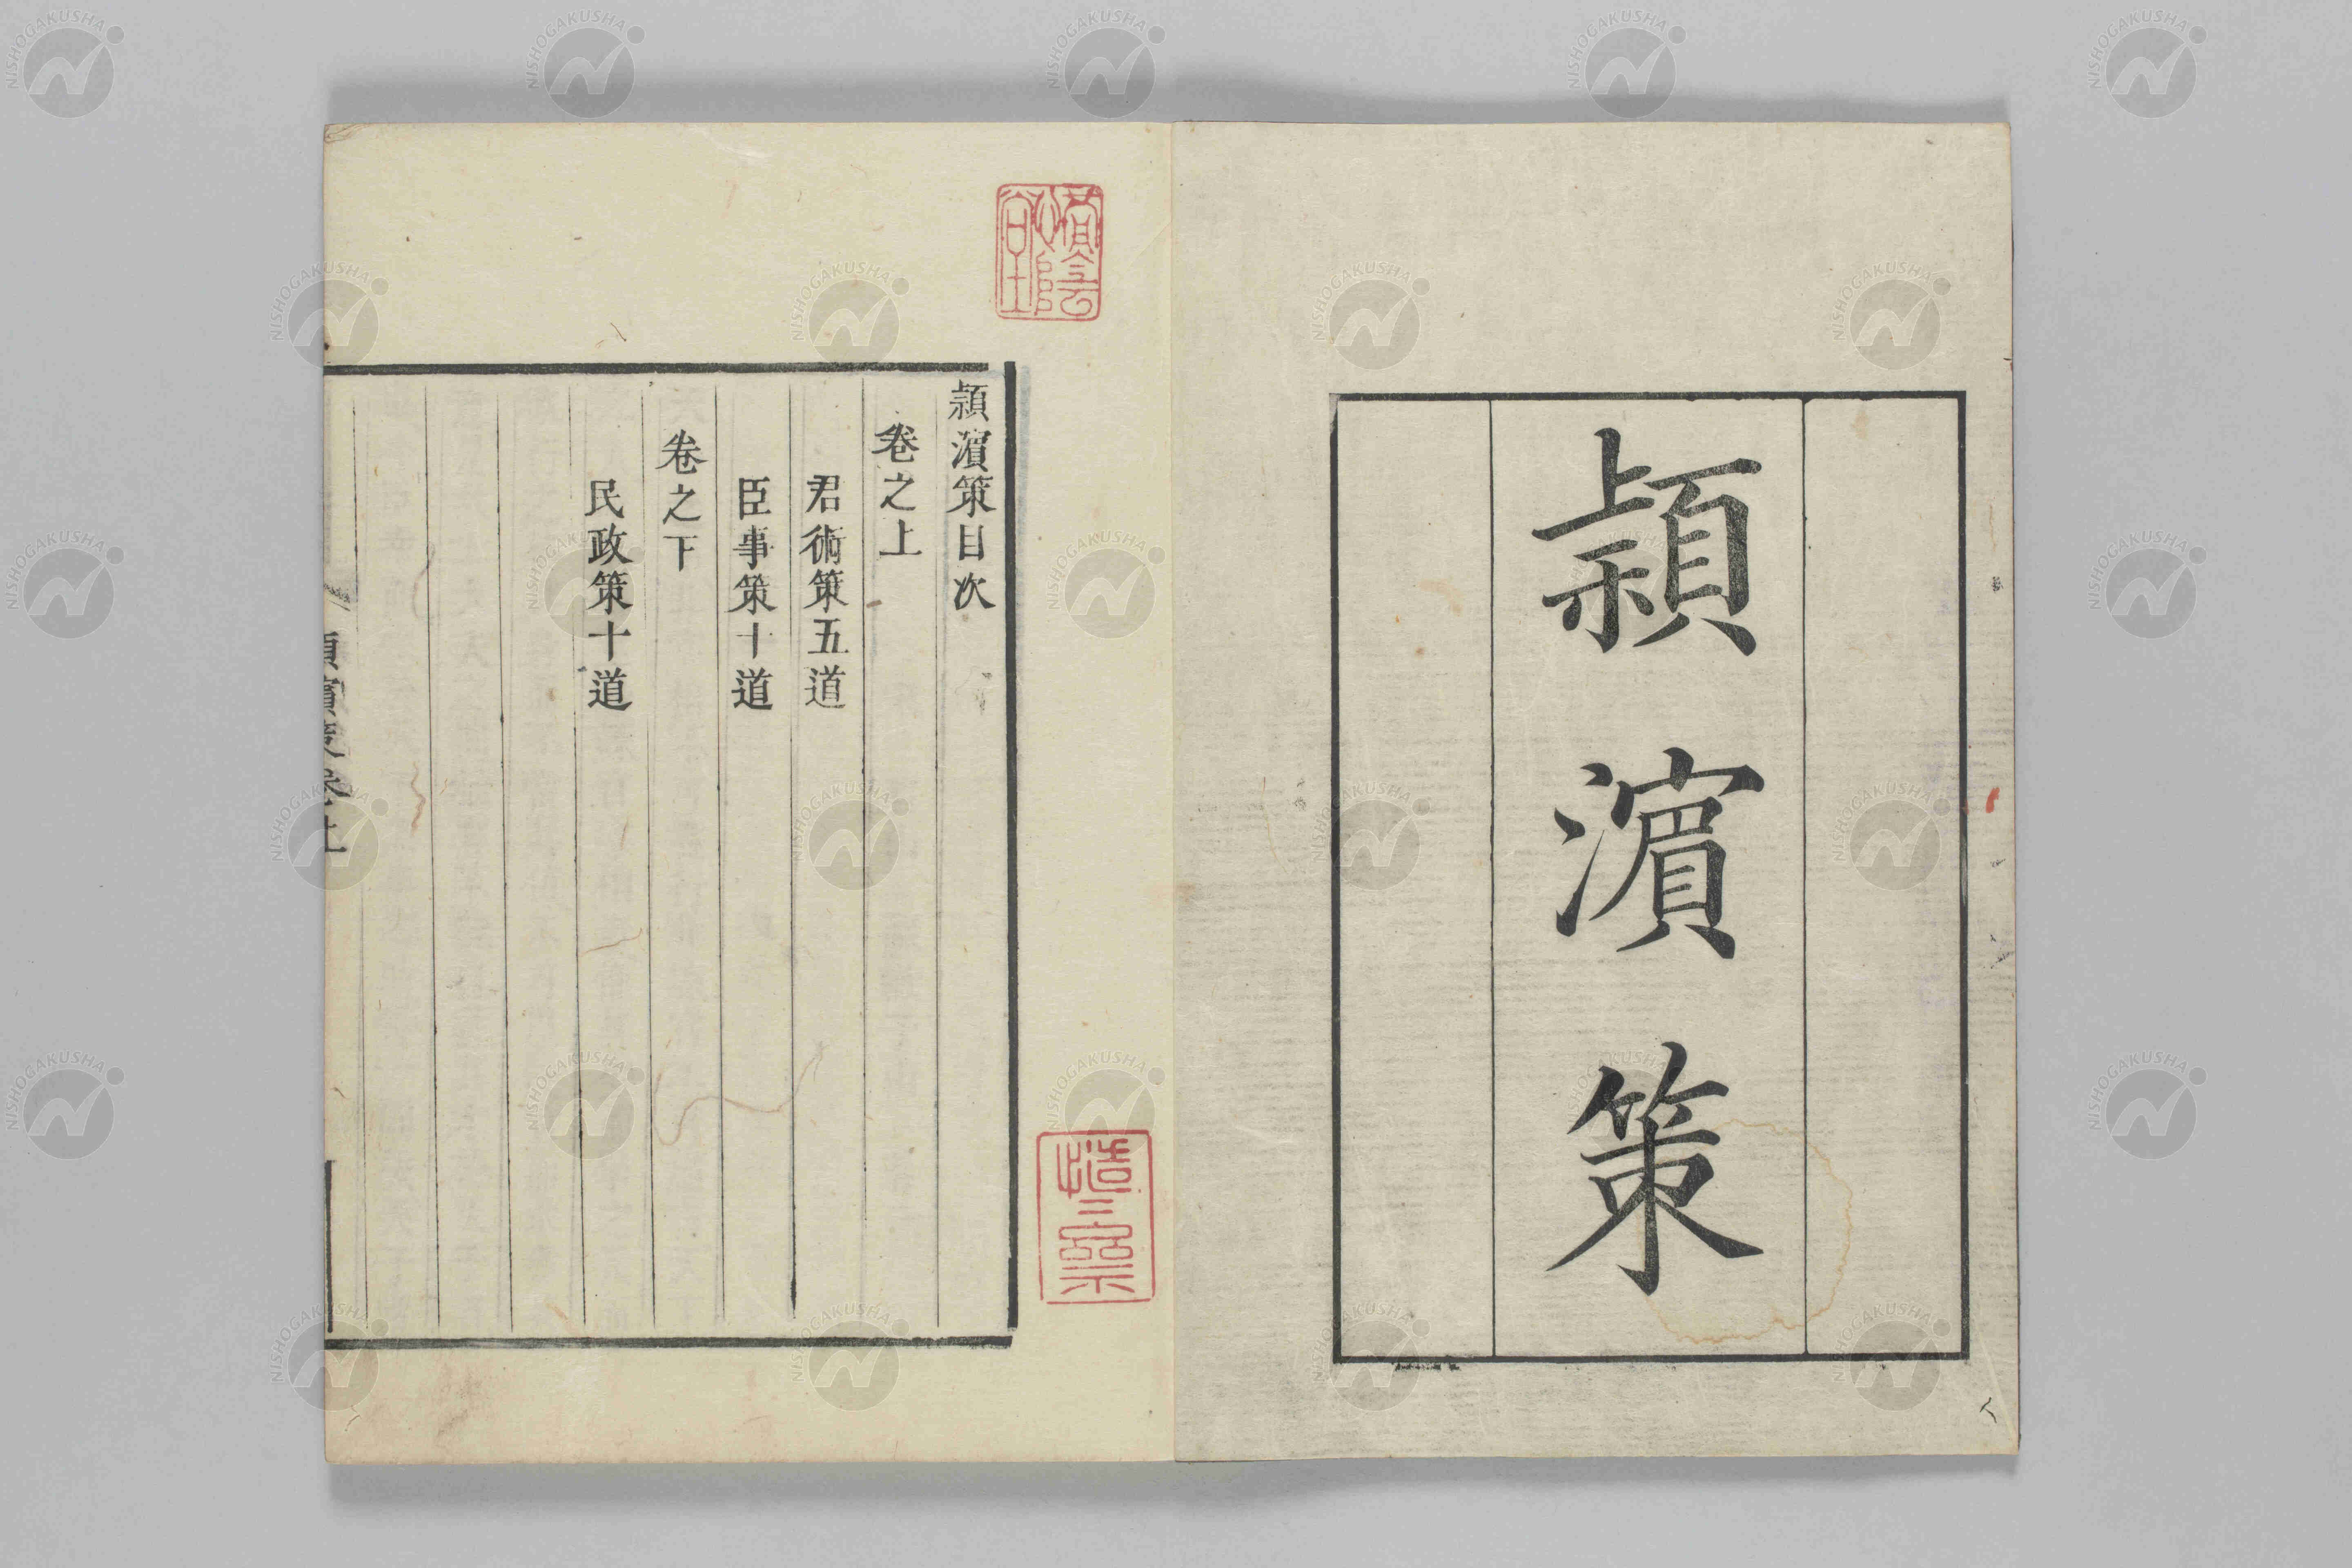 頴濵策
頴濵策目次
卷之上
君術策五道
臣事策十道
卷之下
民政策十道
頴濵策卷上
NISHOGAKUSHA